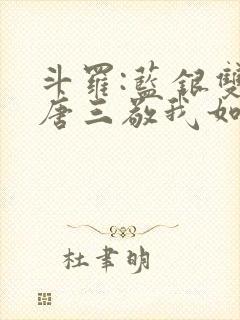 斗羅:藍銀雙
唐三敬我如
杜聿明